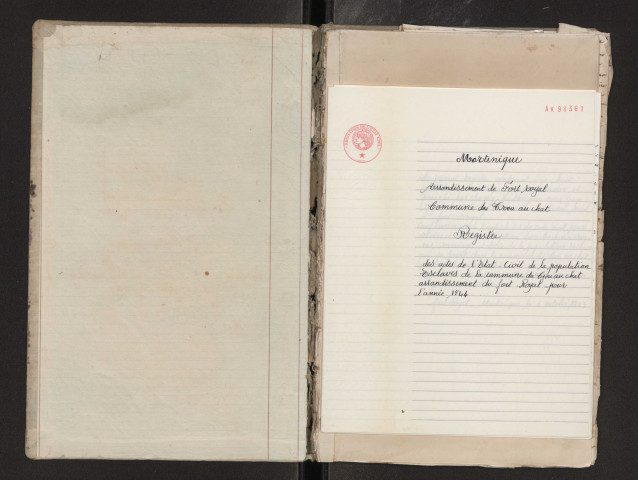 AA 00361
Martinique
Arrondissement de Fort royal
Commune du Trou au chat
Registre
des actes de l'Etat. Civil de la population
esclaves de la commune du Trou au chat
arrondissement du fort Royal pour
l'année 1844